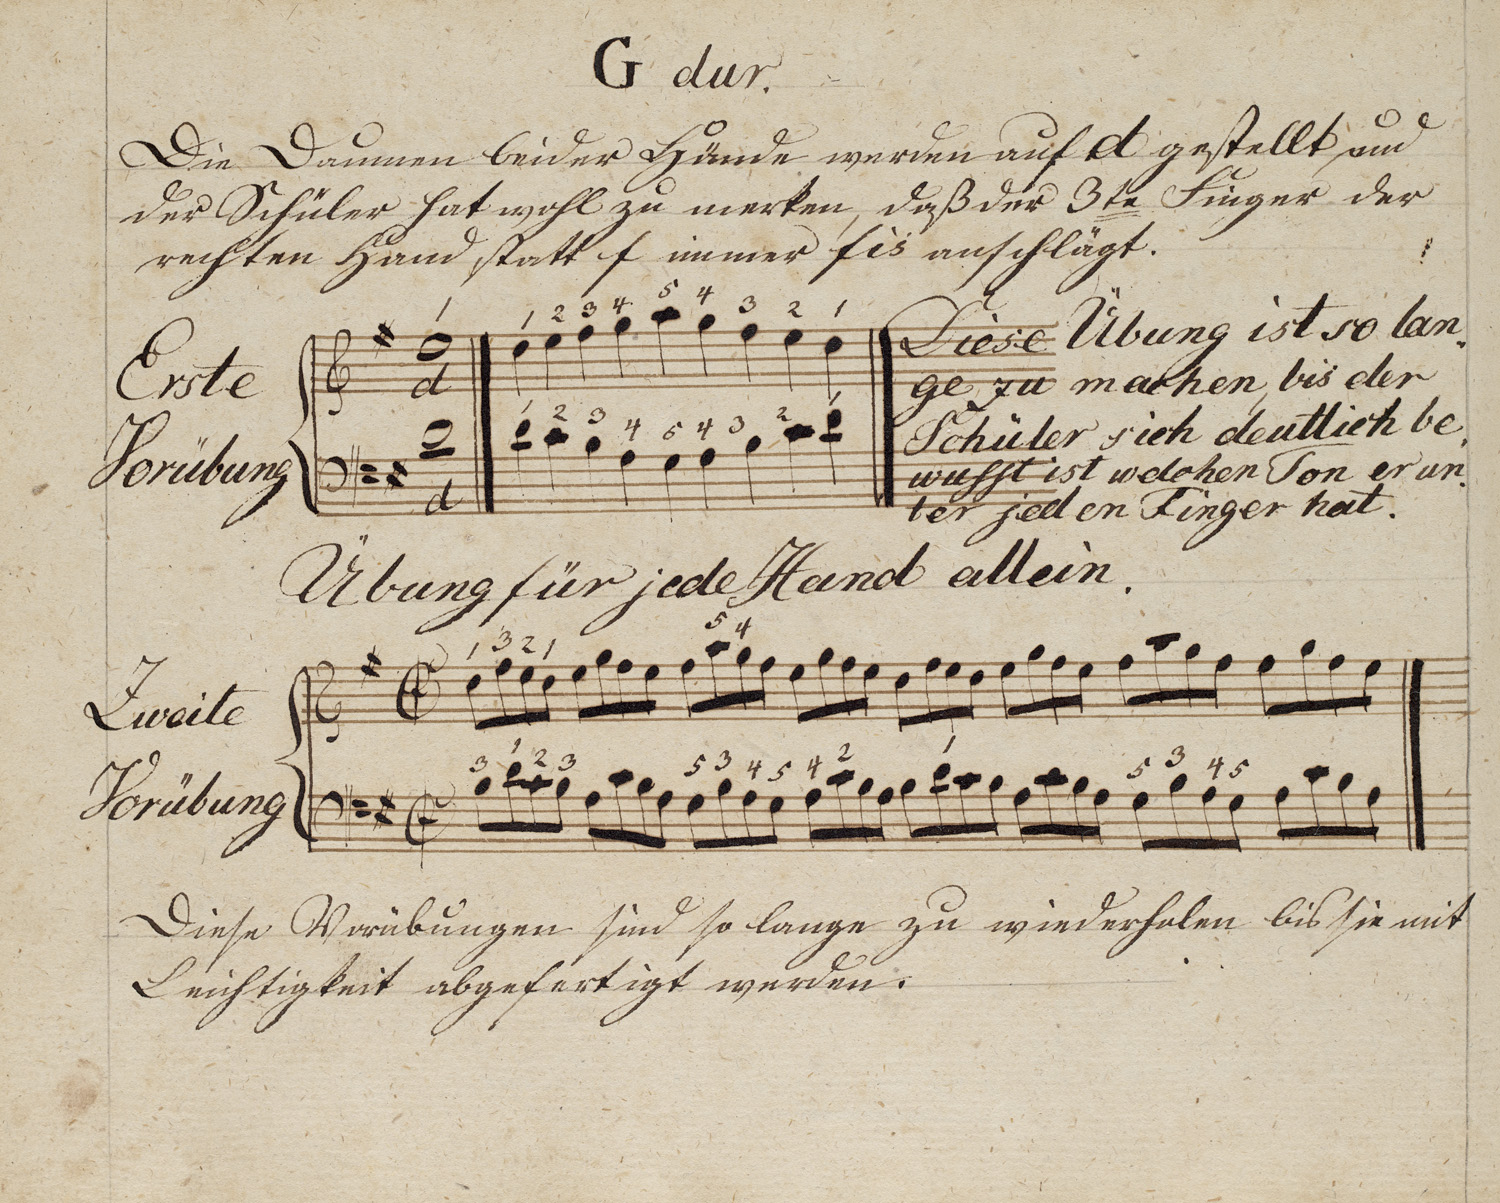 G dur.
Die Daumen beider Hände werden auf d gestellt und
der Schüler hat wohl zu merken, daß der 3te Finger der
rechten Hand statt f immer fis anschlägt.
1
1 2 3 4 5 4 3 2 1
Erste
d
Vorübung
1 2 3 4 5 4 3 2 1
d
Diese Übung ist so lan-
ge zu machen, bis der
Schüler sich deutlich be-
wusst ist welchen Ton er un-
ter jeden Finger hat.
Übung für jede Hand allein.
1 3 2 1 5 4
Zweite
Vorübung
3 1 2 3 5 3 4 5 4 2 1 5 3 4 5
Diese Vorübungen sind so lange zu wiederholen bis sie mit
Leichtigkeit abgefertigt werden.